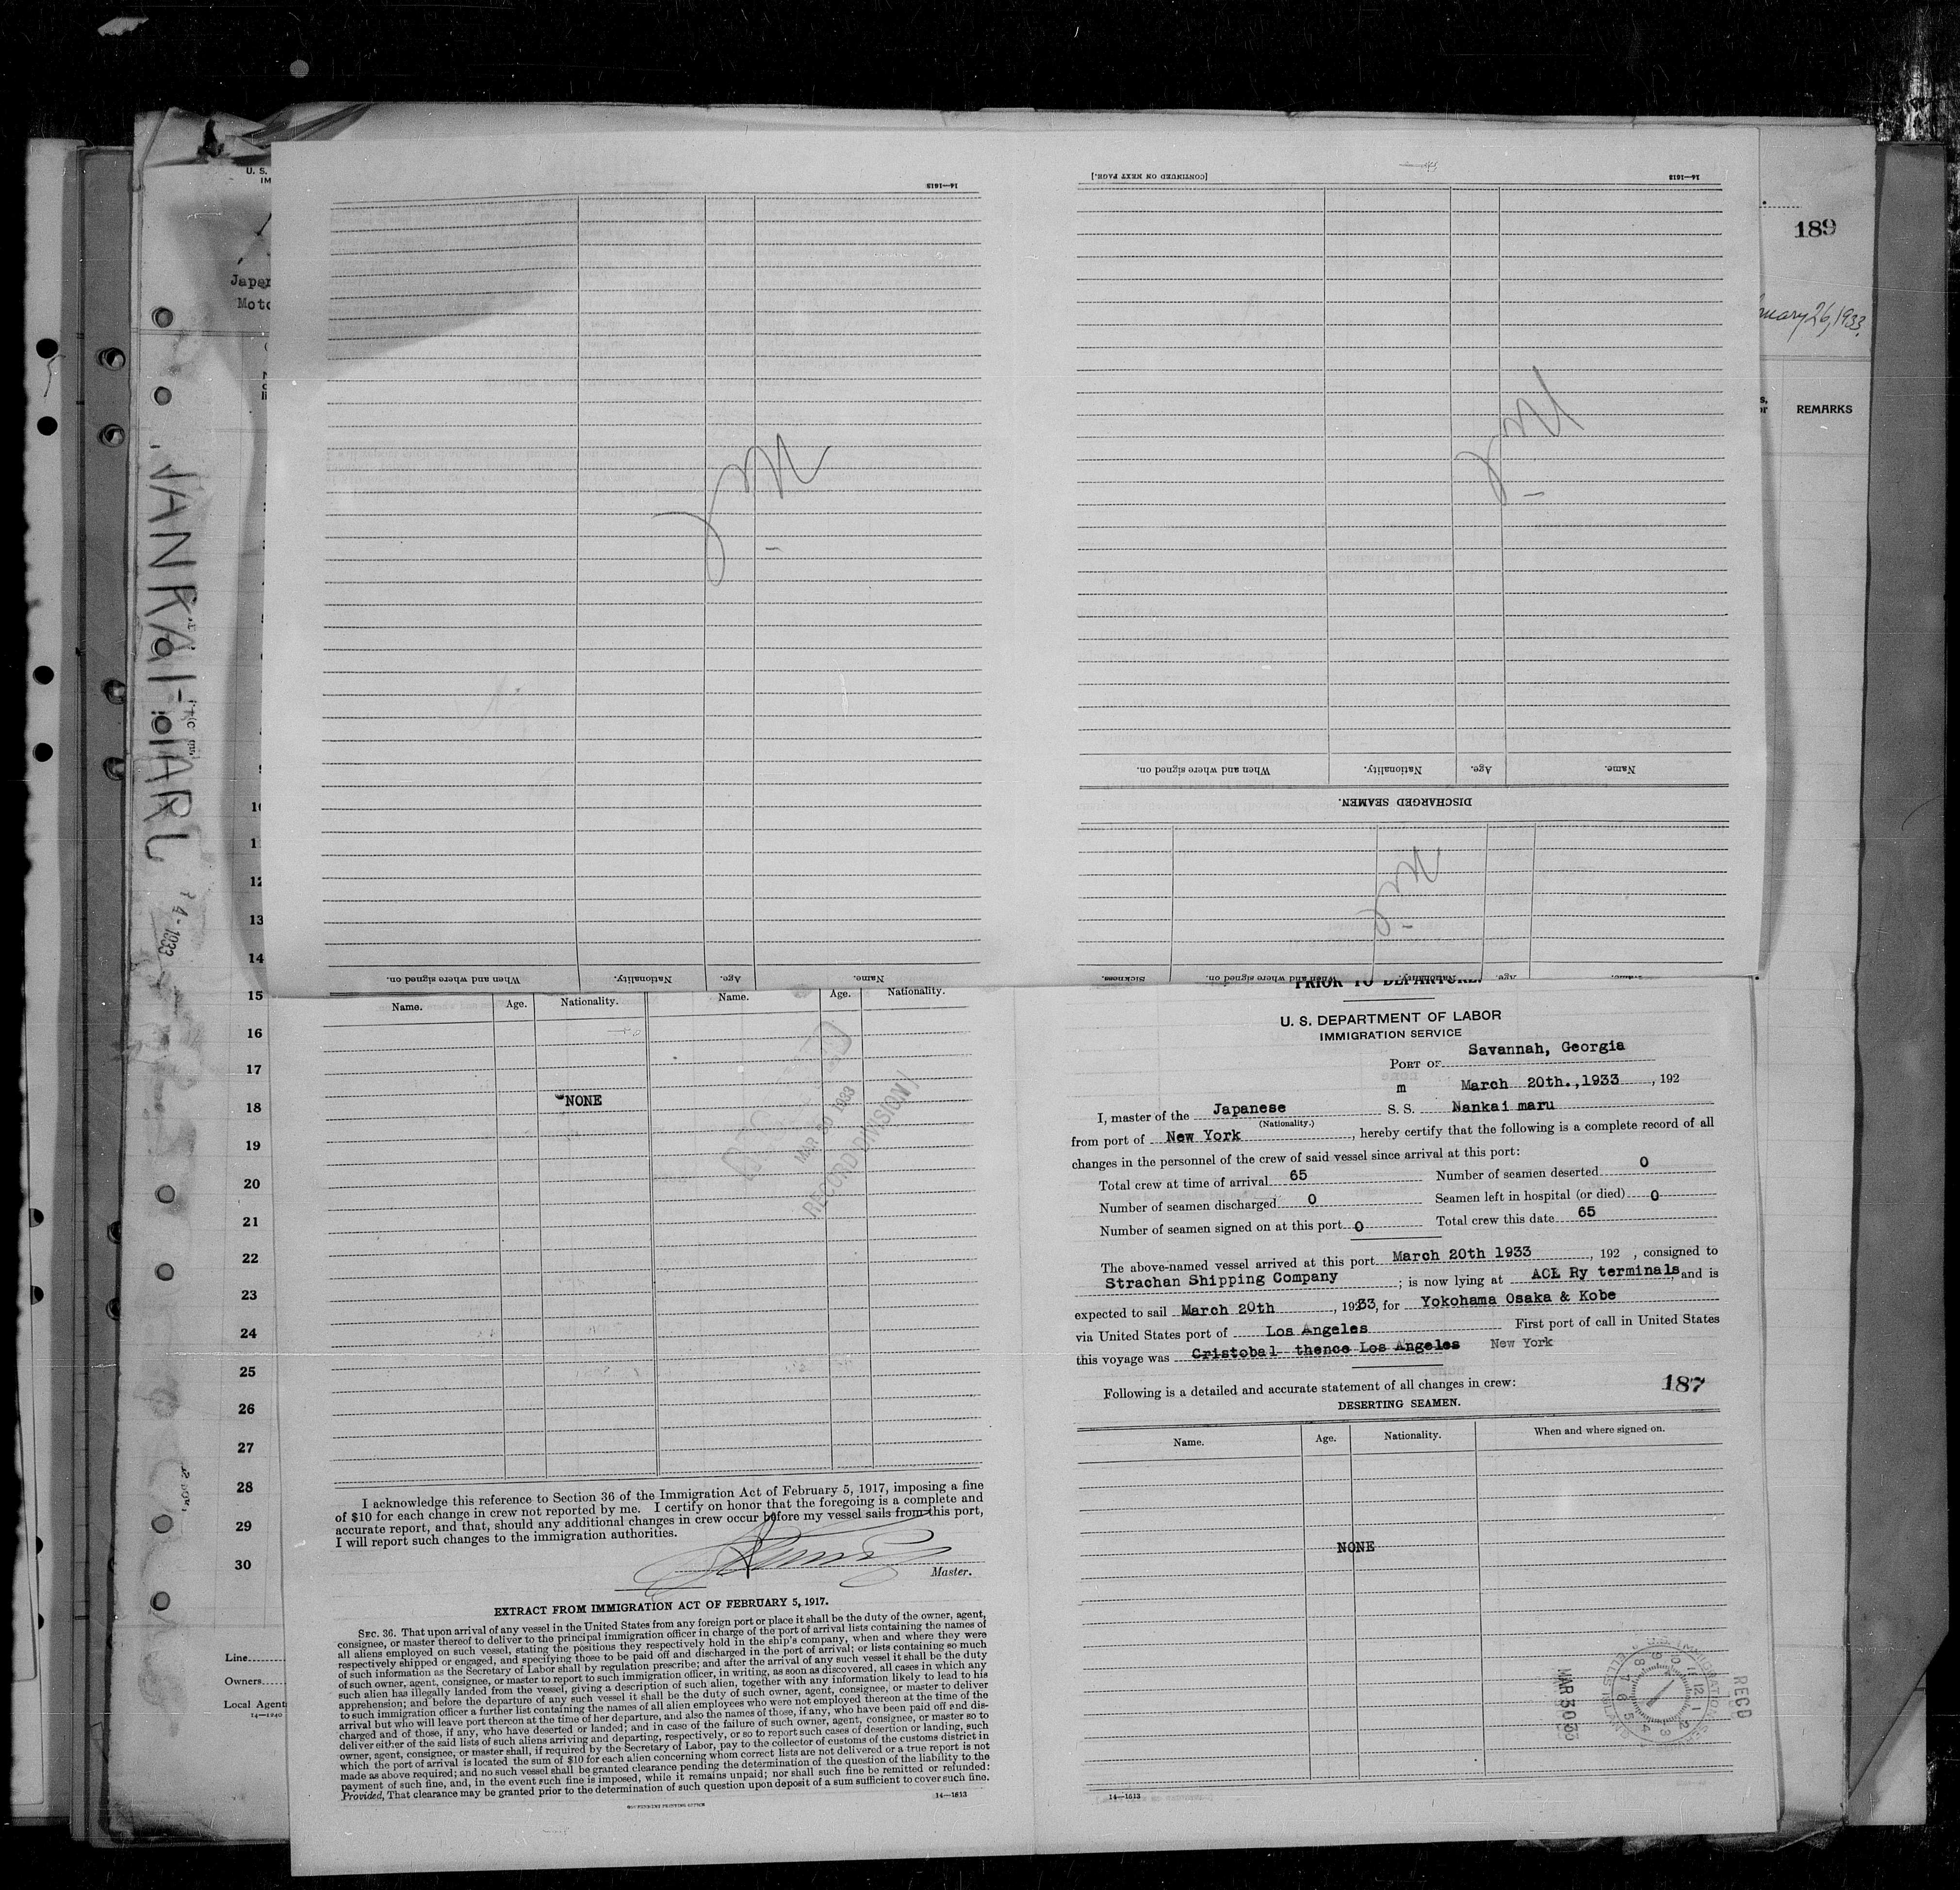 14—1613
[CONTINUED ON NEXT PAGE.]
14—1613
U. S.
IM
Japan
Moto
189
26, 1933.
REMARKS
Nil
Nil
Nil
When and where signed on.
Nationality.
Age.
Name.
DISCHARGED SEAMEN.
When and where signed on.
Nationality.
Age.
Name.
Sickness.
When and where signed on.
Nationality.
Age.
NANKAI MARU
4-1933
11
12
13
14
15
16
17
18
19
20
21
22
23
24
25
26
27
28
29
30
Line
Owners
Local Agent
14—1240
Name.
Age.
Nationality.
Name.
Age.
Nationality.
NONE
MAR 20 1933
RECORD DIVISION
I acknowledge this reference to Section 36 of the Immigration Act of February 5, 1917, imposing a fine
of $10 for each change in crew not reported by me. I certify on honor that the foregoing is a complete and
accurate report, and that, should any additional changes in crew occur before my vessel sails from this port,
I will report such changes to the immigration authorities.
Master.
EXTRACT FROM IMMIGRATION ACT OF FEBRUARY 5, 1917.
SEC. 36. That upon arrival of any vessel in the United States from any foreign port or place it shall be the duty of the owner, agent,
consignee, or master thereof to deliver to the principal immigration officer in charge of the port of arrival lists containing the names of
all aliens employed on such vessel, stating the positions they respectively hold in the ship's company, when and where they were
respectively shipped or engaged, and specifying those to be paid off and discharged in the port of arrival; or lists containing so much
of such information as the Secretary of Labor shall by regulation prescribe; and after the arrival of any such vessel it shall be the duty
of such owner, agent, consignee, or master to report to such immigration officer, in writing, as soon as discovered, all cases in which any
such alien has illegally landed from the vessel, giving a description of such alien, together with any information likely to lead to his
apprehension; and before the departure of any such vessel it shall be the duty of such owner, agent, consignee, or master to deliver
to such immigration officer a further list containing the names of all alien employees who were not employed thereon at the time of the
arrival but who will leave port thereon at the time of her departure, and also the names of those, if any, who have been paid off and dis-
charged and of those, if any, who have deserted or landed; and in case of the failure of such owner, agent, consignee, or master so to
deliver either of the said lists of such aliens arriving and departing, respectively, or so to report such cases of desertion or landing, such
owner, agent, consignee, or master shall, if required by the Secretary of Labor, pay to the collector of customs of the customs district in
which the port of arrival is located the sum of $10 for each alien concerning whom correct lists are not delivered or a true report is not
made as above required; and no such vessel shall be granted clearance pending the determination of the question of the liability to the
payment of such fine, and, in the event such fine is imposed, while it remains unpaid; nor shall such fine be remitted or refunded:
Provided, That clearance may be granted prior to the determination of such question upon deposit of a sum sufficient to cover such fine.
GOVERNMENT PRINTING OFFICE
14—1613
PRIOR TO DEPARTURE.
U. S. DEPARTMENT OF LABOR
IMMIGRATION SERVICE
PORT OF Savannah, Georgia
m March 20th.,1933, 192
I, master of the Japanese S. S. Nankai maru
(Nationality.)
from port of New York, hereby certify that the following is a complete record of all
changes in the personnel of the crew of said vessel since arrival at this port:
Total crew at time of arrival 65 Number of seamen deserted 0
Number of seamen discharged 0 Seamen left in hospital (or died) 0
Number of seamen signed on at this port 0 Total crew this date 65
The above-named vessel arrived at this port March 20th 1933, 192 , consigned to
Strachan Shipping Company; is now lying at ACL Ry terminals, and is
expected to sail March 20th, 1933, for Yokohama Osaka & Kobe
via United States port of Los Angeles First port of call in United States
this voyage was Cristobal thence Los Angeles New York
Following is a detailed and accurate statement of all changes in crew:
187
DESERTING SEAMEN.
Name.
Age.
Nationality.
When and where signed on.
NONE
MAR 30 33
U.S. IMMIGRATION SER
ELLIS ISLAND
REC'D
14—1613